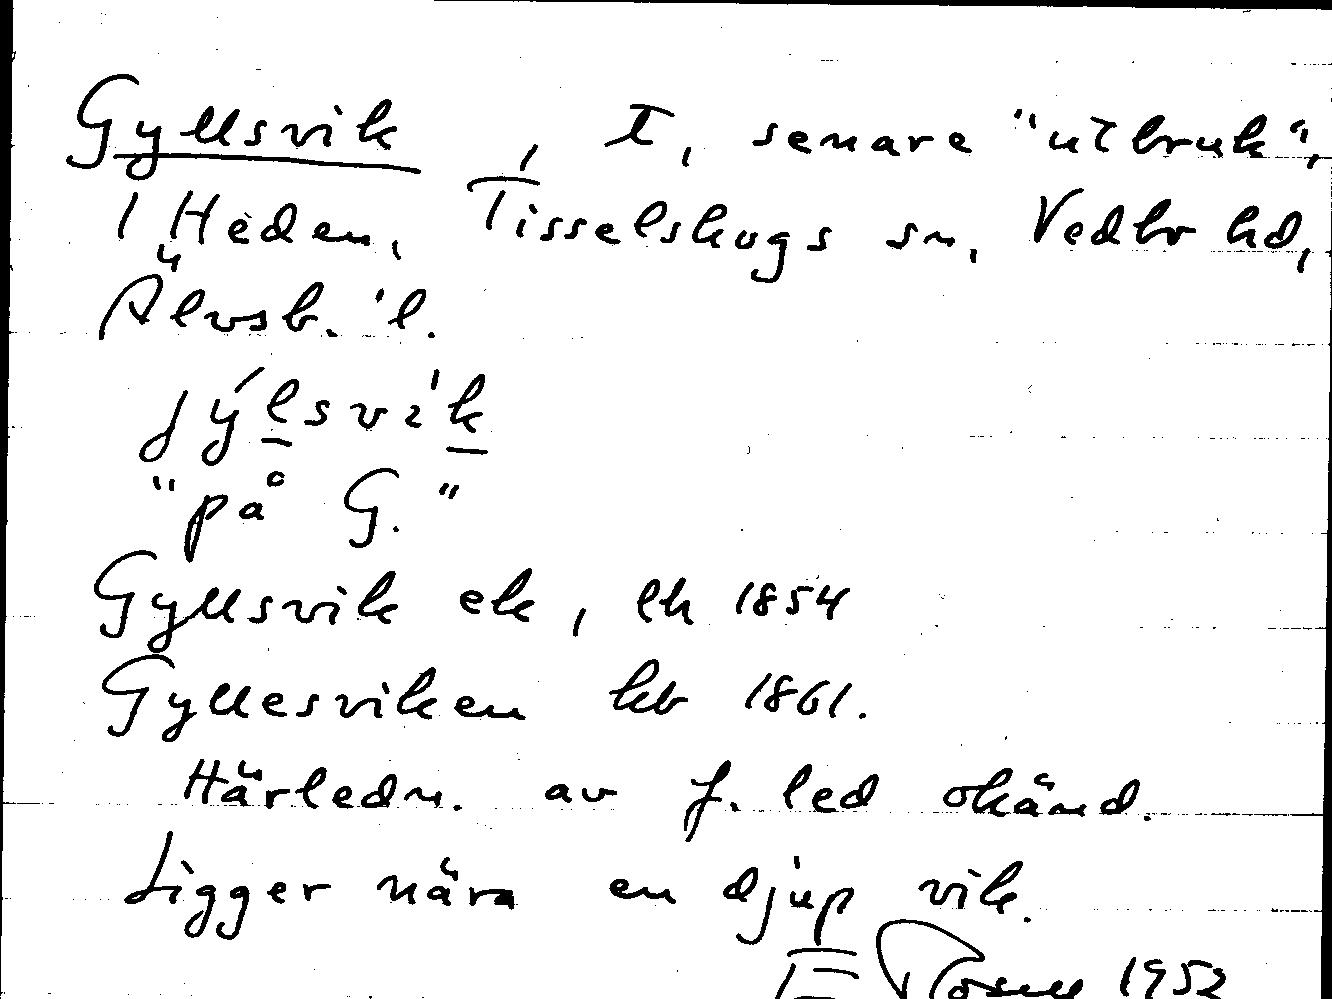 Gyllsvik, T, senare "utbruk",
1/4 Heden, Tisselskogs sn, Vedbo hd,
Älvsb. l.
jýlsvìk
"på G."
Gyllsvik ek, lk 1854
Gyllesviken kb 1861.
Härledn. av f. led okänd.
Ligger nära en djup vik.
E Rosell 1952